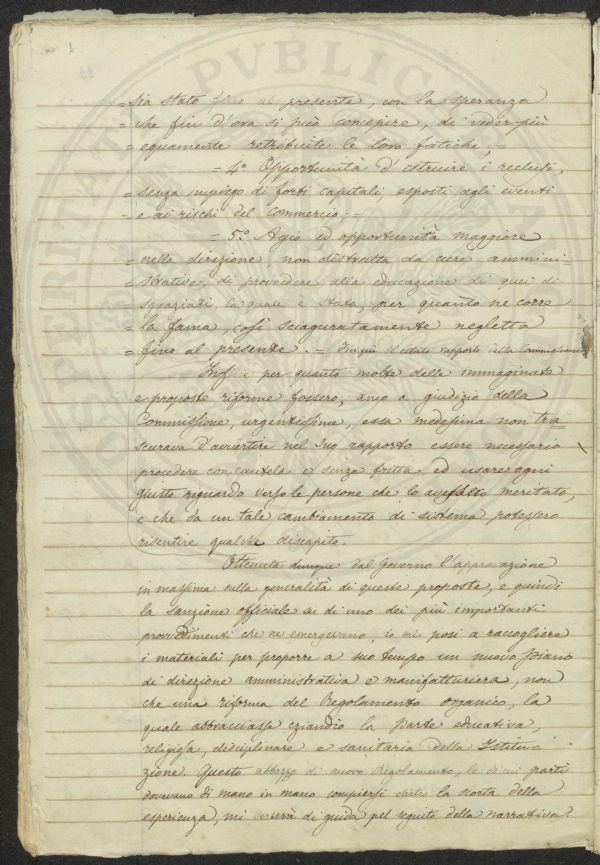 = sia stato fino al presente, con la speranza
= che fin d'ora si può concepire, di veder più
= equamente retribuite le loro fatiche; =
= 4.° Opportunità d'istruire i reclusi,
= senza impiego di forti capitali, esposti agli eventi
= e ai rischi del commercio; =
= 5.° Agio ed opportunità maggiore
= nella direzione, non distratta da cure ammini=
= strative, di provedere alla educazione di quei di=
= sgraziati, la quale è stata, per quanto ne corre
= la fama, così sciaguratamente negletta
= fino al presente. = Fin quì il citato rapporto della Commissione
Infine per quanto molte delle immaginate
e proposte riforme fossero, anco a giudizio della
Commissione, urgentissime, essa medesima non tra=
scurava d'avvertire nel suo rapporto essere necessario
procedere con cautela e senza fretta, ed usare ogni
giusto riguardo verso le persone che lo avessero meritato,
e che da un tale cambiamento di sistema potessero
risentire qualche discapito.
Ottenuta dunque dal Governo l'approvazione
in massima sulla generalità di queste proposte, e quindi
la sanzione officiale di uno dei più importanti
provedimenti che ne emergevano, io mi posi a raccogliere
i materiali per proporre a suo tempo un nuovo piano
di direzione amministrativa e manifatturiera, non
che una riforma del Regolamento organico, la
quale abbracciasse eziandio la parte educativa,
religiosa, disciplinare e sanitaria della Istitu=
zione. Questo abbozzo di nuovo Regolamento, le di cui parti
dovevano di mano in mano compiersi dietro la scorta della
esperienza, mi servirà di guida pel seguito della narrativa.